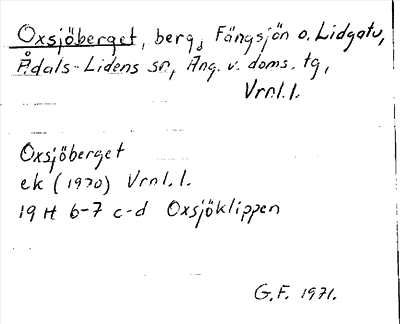 Oxsjöberget, berg, Fängsjön o. Lidgatu,
Ådals-Lidens sn, Ång. v. doms. tg,
Vrnl. l.
Oxsjöberget
ek (1970) Vrnl. l.
19 H 6-7 c-d Oxsjöklippen
G.F. 1971.